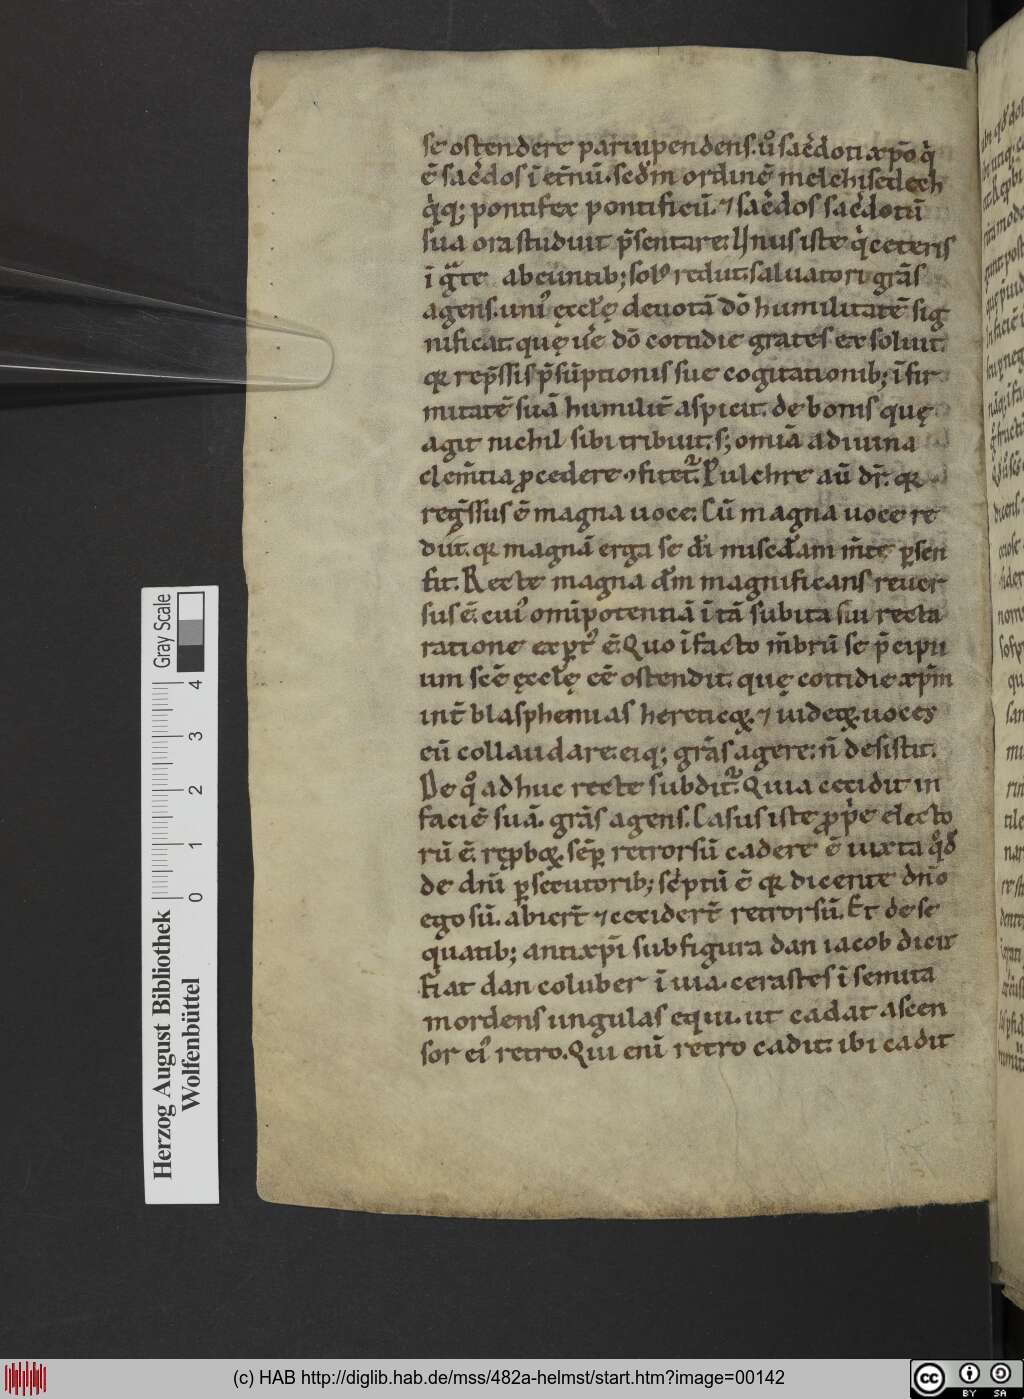 se ostendere paruipendens. u᷎o sac̃doti a xp̃o q̇
ẽ sac̃dos ĩ et̃nũ. secd̃m ordinẽ melchisedech
q̇q; pontifex pontificũ. ⁊ sac̃dos sac̃dotũ
sua ora studuit p̃sentare. Vnus iste q̇ ceteris
ĩ g̃te abeuntib; sol᷒ rediit. saluatori grãs
agens. uni᷒ ęcclę̃ deuotã dõ humilitatẽ sig
nificat. quę ue̾ dõ cottidie grates exsoluit.
qꝛ rep̃ssis p̃sũptionis sue cogitationib; ĩfir
mitatẽ suã humilit̃ aspicit. de bonis quę
agit nichil sibi tribuit. s; omĩa a diuina
clem̃tia ꝓcedere ꝯfitet᷑. Pulchre aũ dr̃. qꝛ
reg̃ssus ẽ magna uoce. Cũ magna uoce re
diit. qꝛ magnã erga se dĩ misc̃dĩam m̃te ꝑsen
sit. Recte magna dm̃ magnificans reuer
sus ẽ. cui᷒ omĩpotentiã ĩ tã subita sui recta
ratione exꝑt᷒ ẽ. Quo ĩ facto m̃brũ se p̃cipu
um scẽ ęcclę̃ eẽ ostendit. quę cottidie a xp̃m
int̃ blasphemias hereticoꝝ. ⁊ iudeoꝝ. uoces
eũ collaudare. eiq; grãs agere. ñ desistit.
De q̊ adhuc recte subdit᷑. Quia cecidit in
faciẽ suã. grãs agens. Casus iste ꝓp̃e electo
rũ ẽ. rę̃ꝓboꝝ. sẽꝑ retrorsũ cadere ẽ iuxta qd̃
de dñi ꝑsecutorib; sc̃ptũ ẽ qꝛ dicente dño
ego sũ. abiert̃ ⁊ cecidert̃ retrorsũ. Et de se
quatib; antixp̃i sub figura dan iacob dicit
Fiat dan coluber ĩ uia. cerastes ĩ semita
mordens ungulas equi. ut cadat ascen
sor ei᷒ retro. Qui enĩ retro cadit. ibi cadit
Herzog August Bibliothek
Wolfenbüttel
Gray Scale
0 1 2 3 4
(c) HAB http://diglib.hab.de/mss/482a-helmst/start.htm?image=00142
cc BY SA